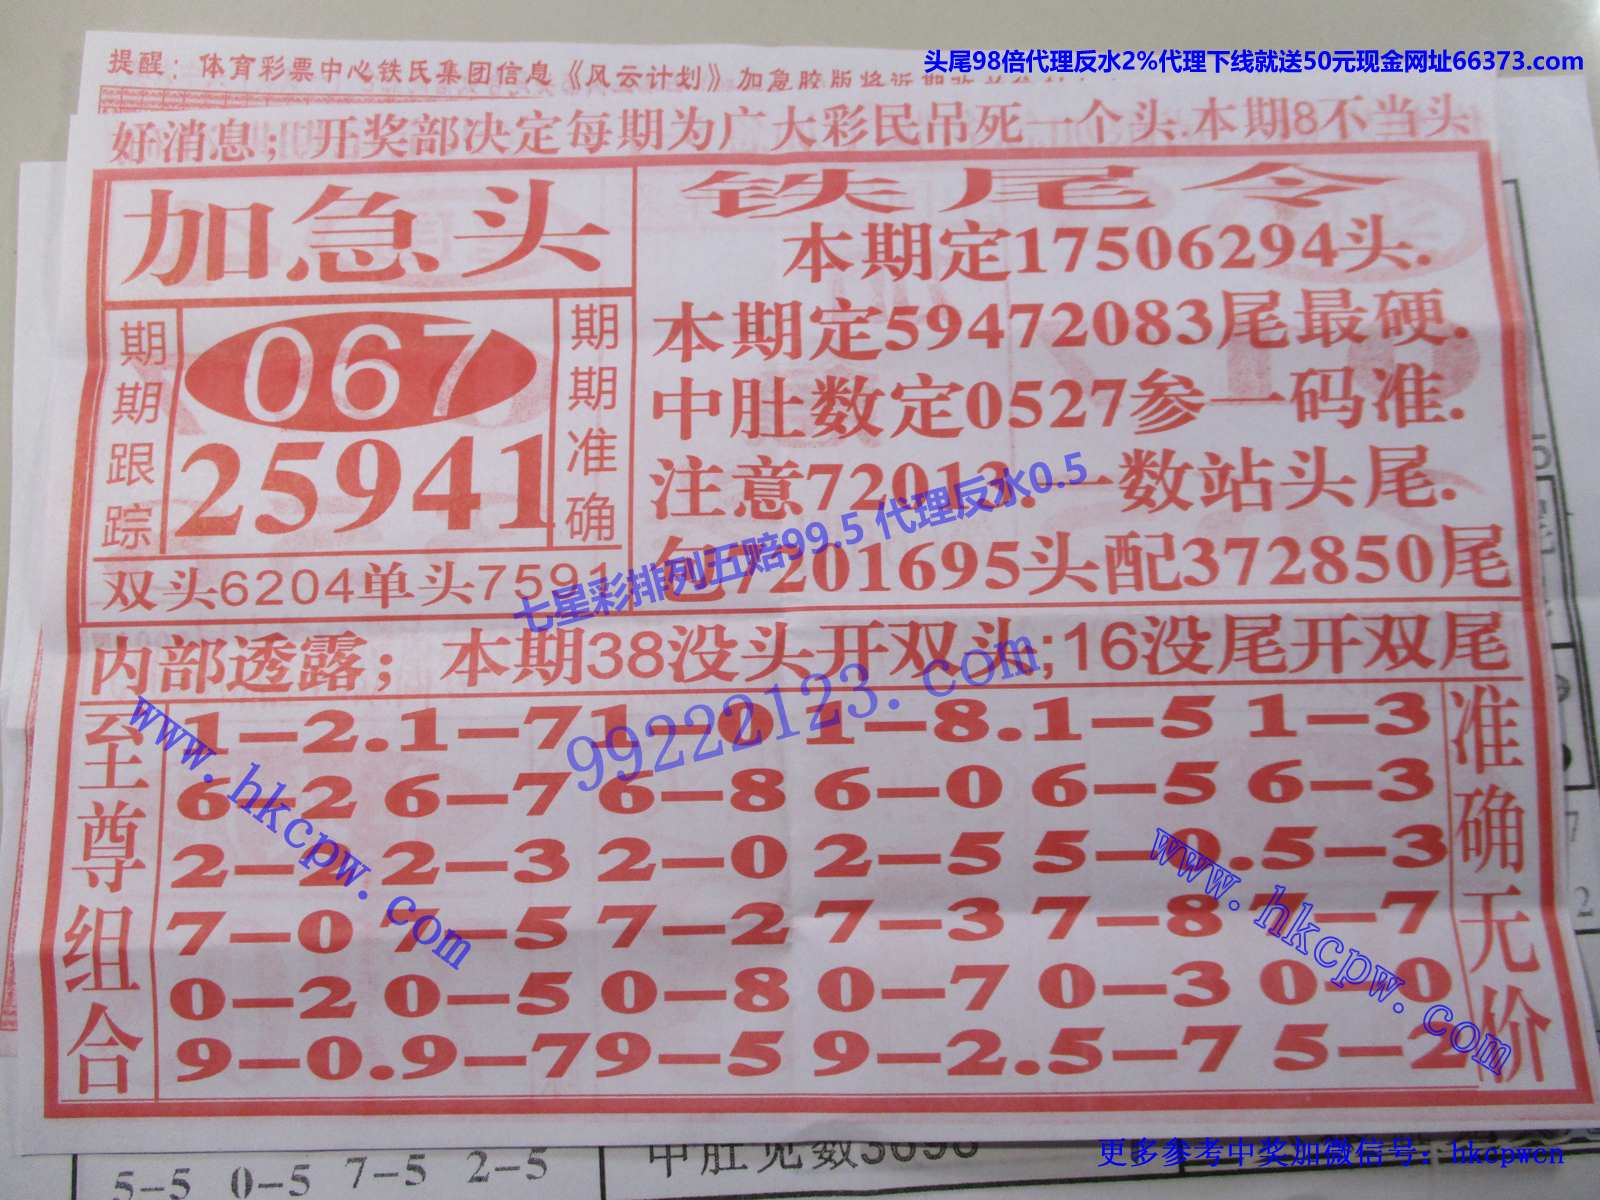 头尾98倍代理反水2%代理下线就送50元现金网址66373.com
提醒：体育彩票中心铁氏集团信息《风云计划》加急胶版将近期
好消息；开奖部决定每期为广大彩民吊死一个头.本期8不当头
加急头
期期跟踪
067
25941
期期准确
双头6204单头7591
铁尾令
本期定17506294头.
本期定59472083尾最硬.
中肚数定0527参一码准.
注意72013.一数站头尾.
包7201695头配372850尾
七星彩排列五赔99.5 代理反水0.5
内部透露；本期38没头开双头;16没尾开双尾
99222123.com
www.hkcpw.com
www.hkcpw.com
至尊组合
1-2.1-7 1-0 1-8.1-5 1-3
6-2 6-7 6-8 6-0 6-5 6-3
2-2 2-3 2-0 2-5 5-0.5-3
7-0 7-5 7-2 7-3 7-8 7-7
0-2 0-5 0-8 0-7 0-3 0-0
9-0.9-7 9-5 9-2.5-7 5-2
准确无价
5-5 0-5 7-5 2-5
中肚见数3698
更多参考中奖加微信号：hkcpwcn